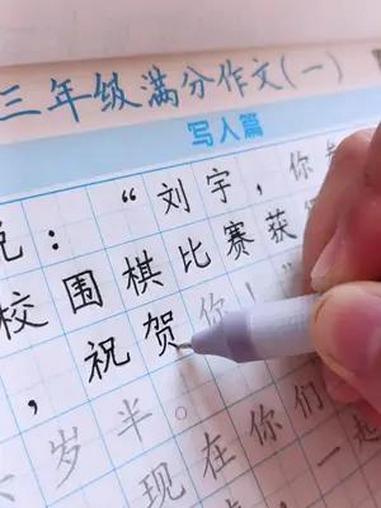 三年级满分作文(一)
写人篇
：“刘宇，你
校围棋比赛获
，祝贺你！”
岁半。
现在你们
一起